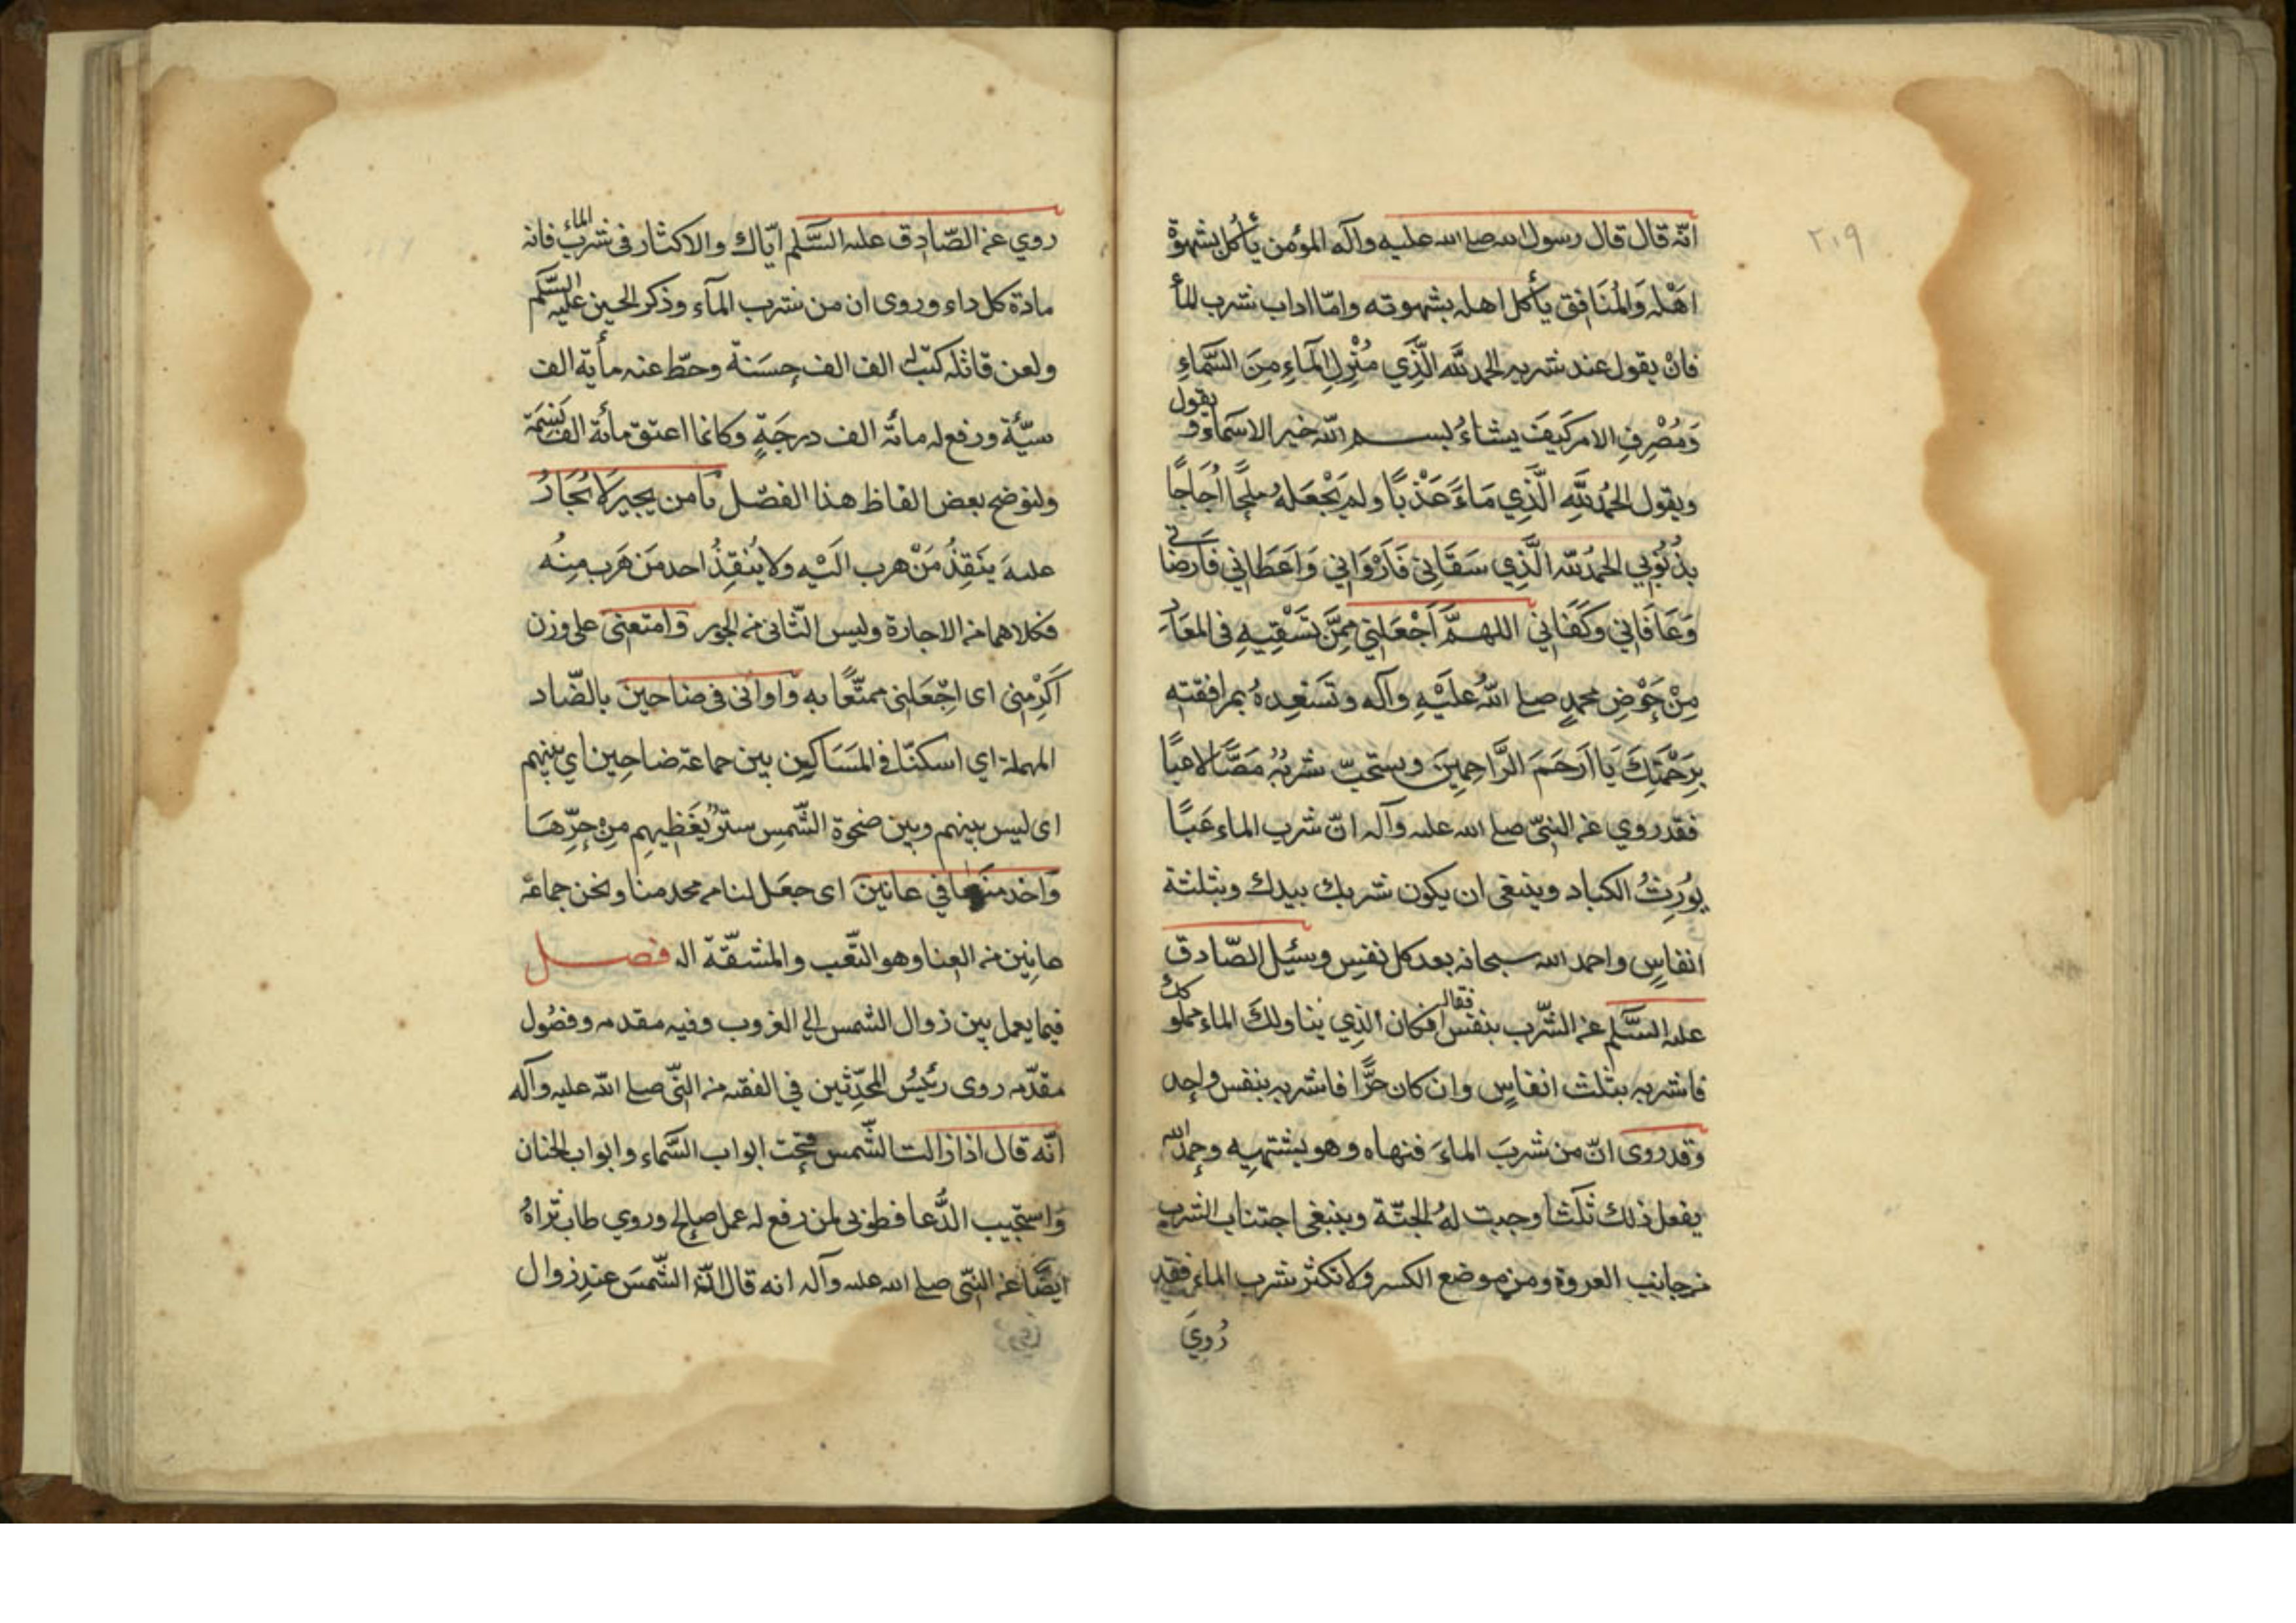 ٢١٩
انّه قال قال رسول الله صلى الله عليه وآله المؤمن يأكل بشهوة
اَهْله وَالمُنَافِق يأكل اهله بشهوته وامّا اداب شرب المأ
فانْ يقول عند شربه الحمد للّه الَّذِي مُنْزِلِ المَاءِ مِنَ السَّمَاءِ
وَمُصْرِفِ الامر كَيفَ يشاءُ بسم اللّه خير الاسمآء و يقول
ويقول الحمُد للَّهِ الَّذِي مَاءً عَذْبًا ولم يَجْعَلهُ مِلحًا اُجَاجًا
بذُنُوبي الحمُد للّه الَّذِي سَقَانِي فَاَرْوَانِي وَاَعطَانِي فَاَرضَانِي
وَعَافَانِي وَكَفَانِي اللهمَّ اَجْعَلنِي مِمَّن تَسْقِيهِ في المعَادِ
مِنْ حَوْضِ محمدٍ صلى اللّهُ عَلَيْهِ وآله وتَسَعِدهُ بمرافقته
بِرَحْمَتِكَ يَا اَرحَمَ الرَّاحِمِينَ ويستحبّ شربُهُ مَصًّا لاعبًّا
فقد روي عن النبيّ صلى الله عليه وآله انّ شرب الماء عَبًّا
يُورِثُ الكباد وينبغي ان يكون شربك بيدك وبثلثة
انفاسٍ واحمد الله سبحانه بعد كل نفسٍ وسُئِل الصّادق
عليه السَّلم عن الشّرب بنفس فقال ان كان الَّذِي يناولك الماء مملوكك
فاشربه بثلث انفاسٍ وان كان حرًّا فاشربه بنفس واحد
وقد روى انّ من شربَ الماءَ فنهاه وهو يشتهيه وحمد الله
يفعل ذلك ثَلثًا وجبت لهُ الجنّة وينبغي اجتناب الشرب
من جانب العروة ومن موضع الكسر ولا تكثر شرب الماء فقد
رُوِيَ
روي عن الصّادق عليه السَّلم ايّاك والاكثار في شرب الماء فانه
مادة كل داء وروى ان من شرب المآء وذكر الحسين عليه السَّلم
ولعن قاتله كتب له الف الف حسَنة وحطّ عنه مأية الف
سيّئة ورفع له مائة الف درجَةٍ وكانما اعتق مائة الف نسَمَة
ولنوضح بعض الفاظ هذا الفصْل يَامن يجير لا يُجَارُ
عليه يَنقِذُ مَنْ هرب اليْه ولا يُنقِذُ احد مَن هَرب مِنهُ
فكلاهما من الاجارة وليس الثّاني من الجور وَامتعني على وزن
اَكرِمْنِي اى اجْعَلنِي ممتّعًا به وَاوانى في ضاحينَ بالضّاد
المهملة اي اسكنّا في المَسَاكِين بين جماعة ضاحِين اي بينهم
اى ليس بينهم وبين ضحوة الشّمس سترٌ يُغَطِّيهِم مِنْ حرِّهَا
وَاخد منهَا في عانينَ اى جعَل لنا من يحدمنا ونحن جماعَة
عانِين من العِنا وهو التّعب والمشقّة اله فصل
فيما يعمل بين زوال الشّمس الى الغروب وفيه مقدمه وفصُول
مقدّمه روى رئيسُ المحدّثين في الفقيه من النّبي صلى اللّه عليه وآله
انّه قال اذا زالت الشّمس فتحت ابواب السَّماء وابواب الجنان
وَاستجيب الدُّعا فطوبى لمن رفع له عمل صالح وروي طاب ثراهُ
ايضًا عن النبّي صلى الله عليه وآله انه قال انّ الشّمسَ عند زوال